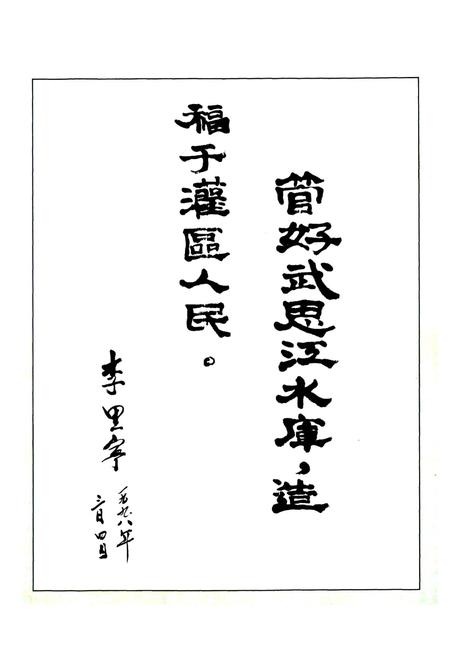 管好武思江水庫，造
福于灌區人民。
李里寧
一九九八年
三月四日